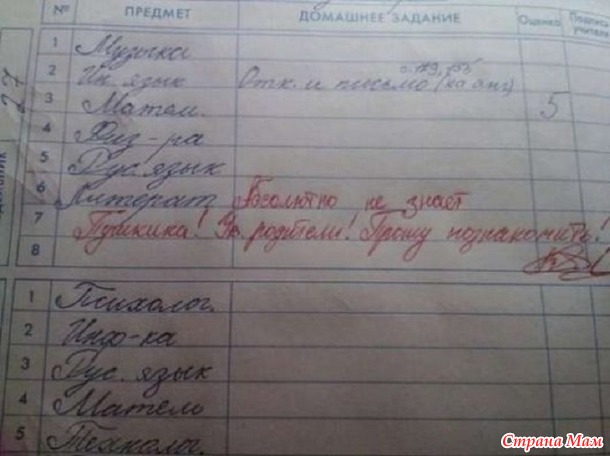 № ПРЕДМЕТ ДОМАШНЕЕ ЗАДАНИЕ Оценка Подпись учителя
27
1 Музыка
2 Ин. язык Отк. и письмо (на анг)
3 Матем. 5
4 Физ-ра
5 Рус. язык
6 Литерат. Абсолютно не знает
7 Пушкина! Ув. родители! Прошу познакомить!
8
1 Психолог.
2 Инф-ка
3 Рус. язык
4 Матем
5 Технолог.
Страна Мам